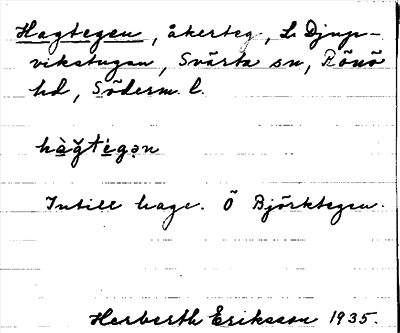 Hagtegen, åkerteg, L. Djup-
vikstugan, Svärta sn, Rönö
hd, Söderm. l.
hàg̀tégən
Intill hage. Ö Björktegen.
Herberth Eriksson 1935.